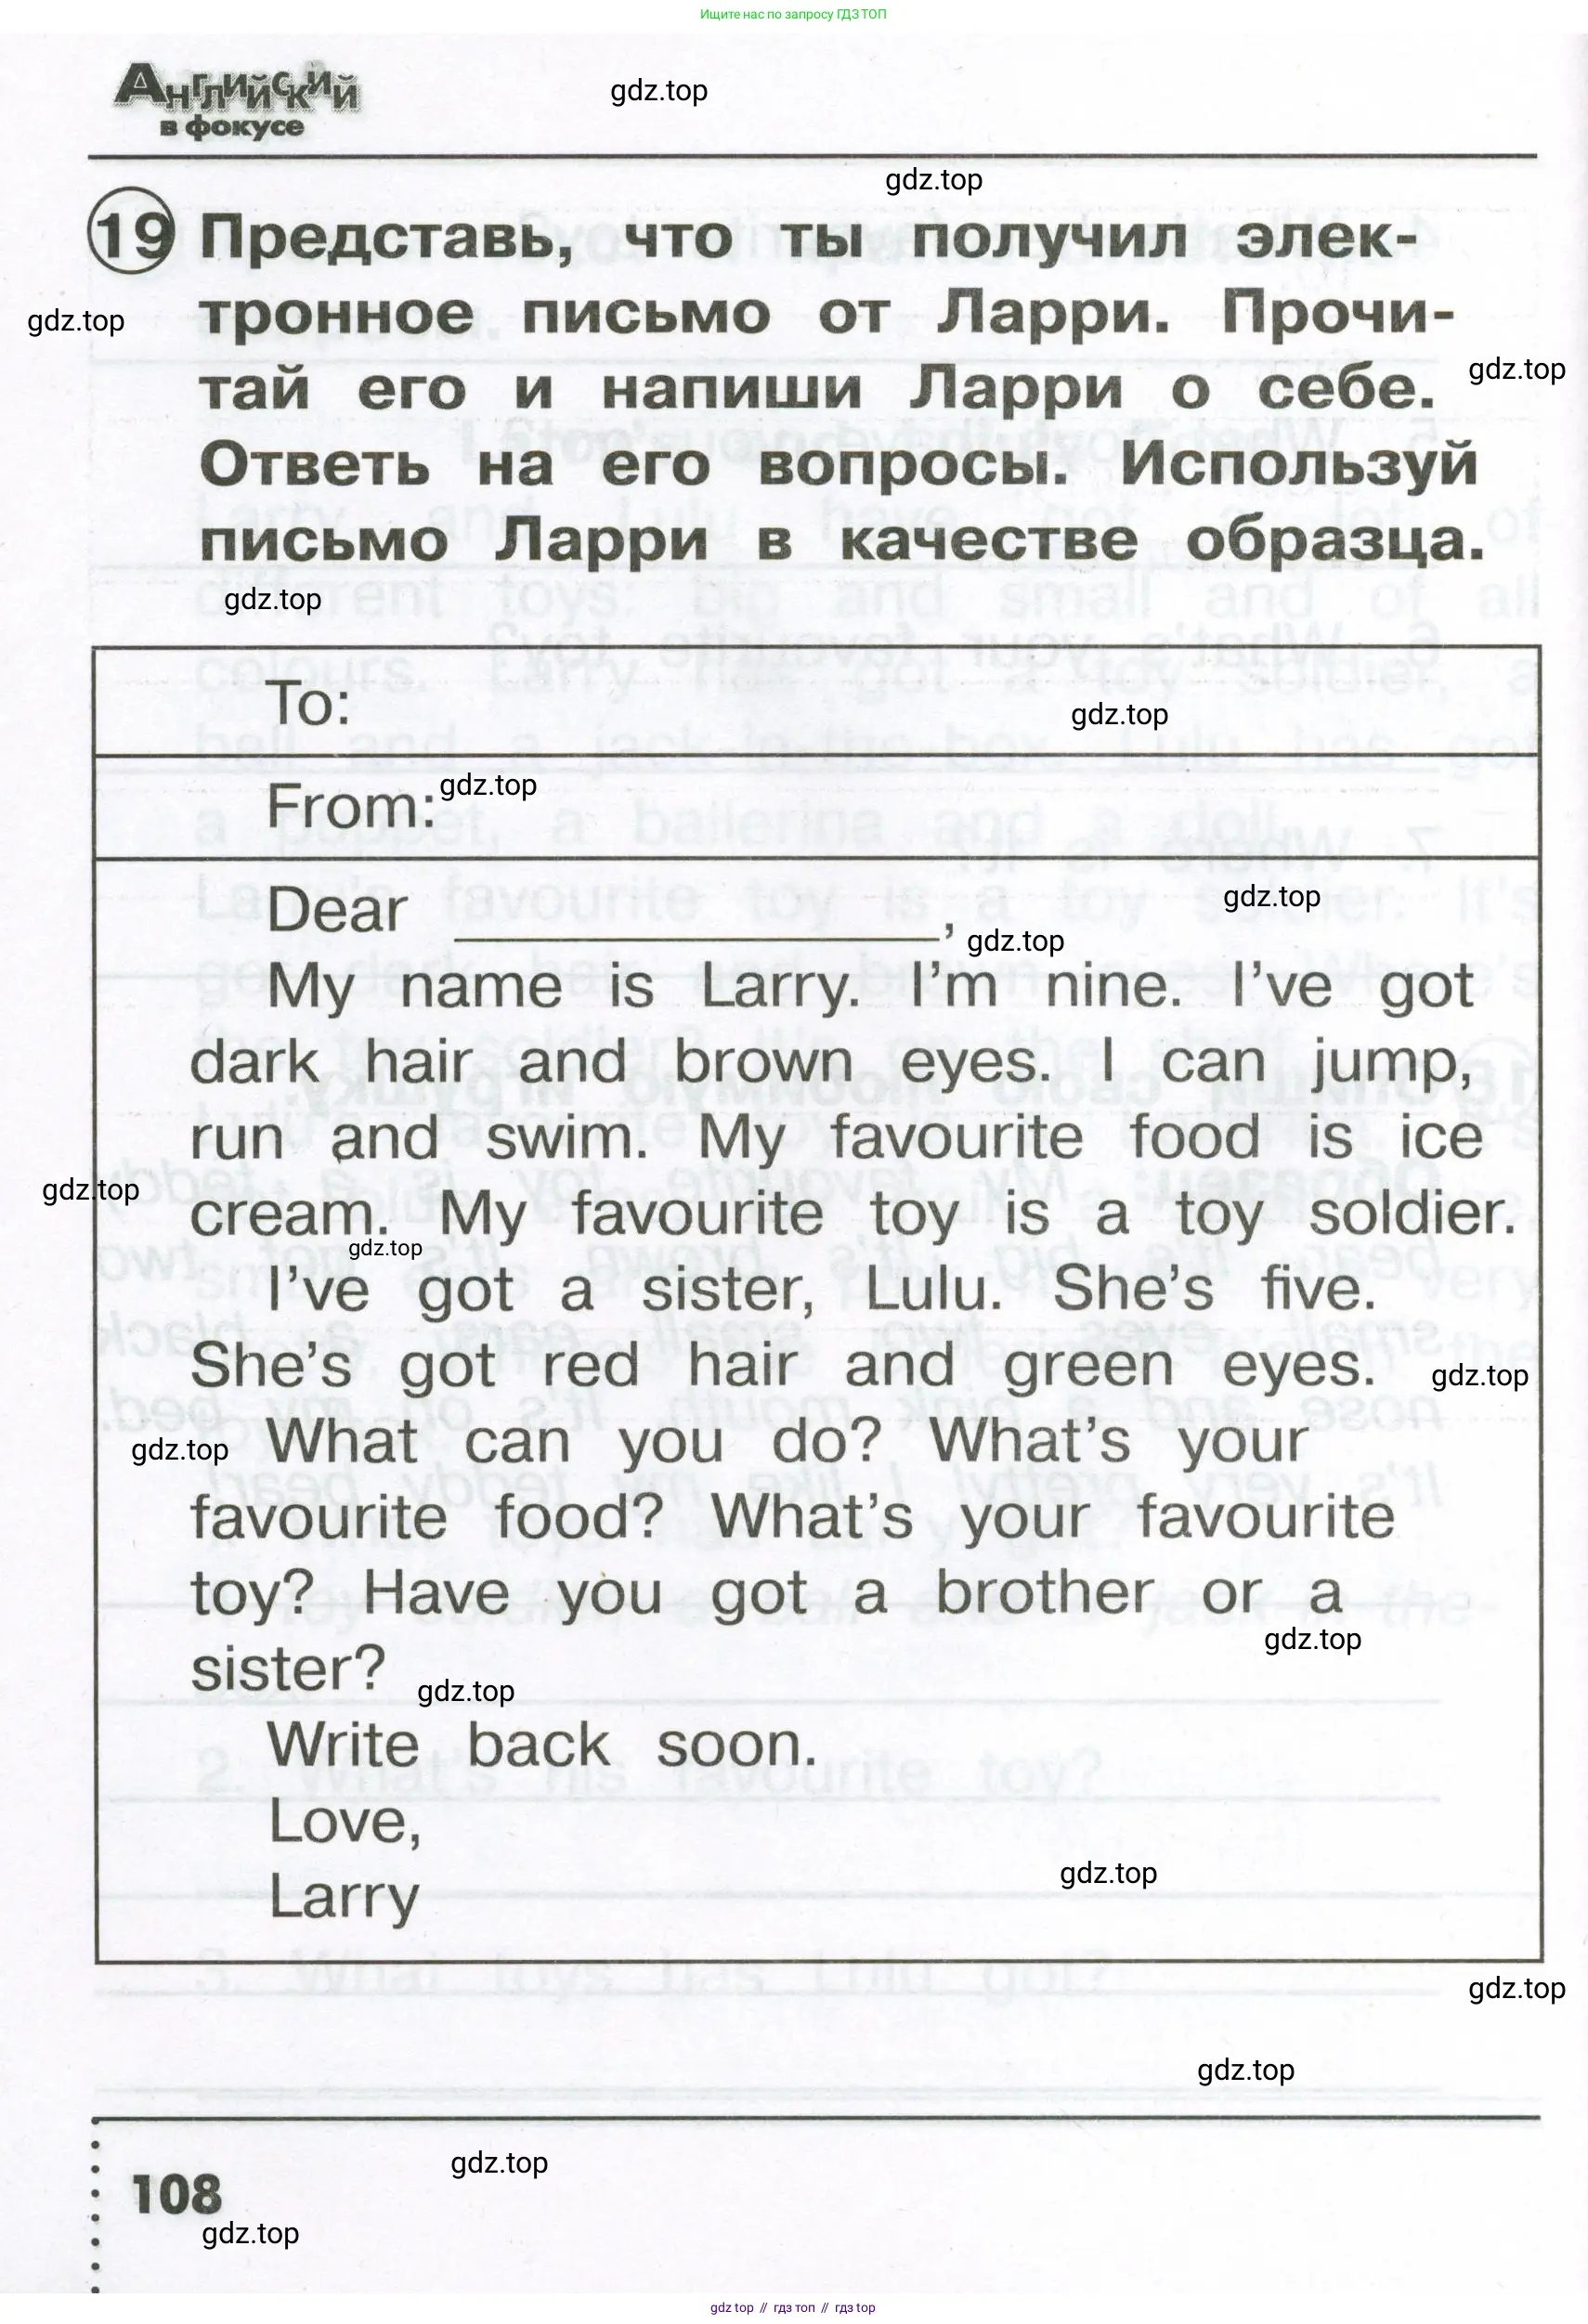 Ищите нас по запросу ГДЗ ТОП
Английский
в фокусе
gdz.top
gdz.top
19 Представь, что ты получил элек-
тронное письмо от Ларри. Прочи-
gdz.top
тай его и напиши Ларри о себе.
gdz.top
Ответь на его вопросы. Используй
письмо Ларри в качестве образца.
gdz.top
To:
gdz.top
From:
gdz.top
Dear ,
gdz.top
gdz.top
My name is Larry. I’m nine. I’ve got
dark hair and brown eyes. I can jump,
run and swim. My favourite food is ice
gdz.top
cream. My favourite toy is a toy soldier.
gdz.top
I’ve got a sister, Lulu. She’s five.
She’s got red hair and green eyes.
gdz.top
What can you do? What’s your
gdz.top
favourite food? What’s your favourite
toy? Have you got a brother or a
gdz.top
sister?
gdz.top
Write back soon.
Love,
gdz.top
Larry
gdz.top
gdz.top
gdz.top
108
gdz.top
gdz top // гдз топ // гдз top